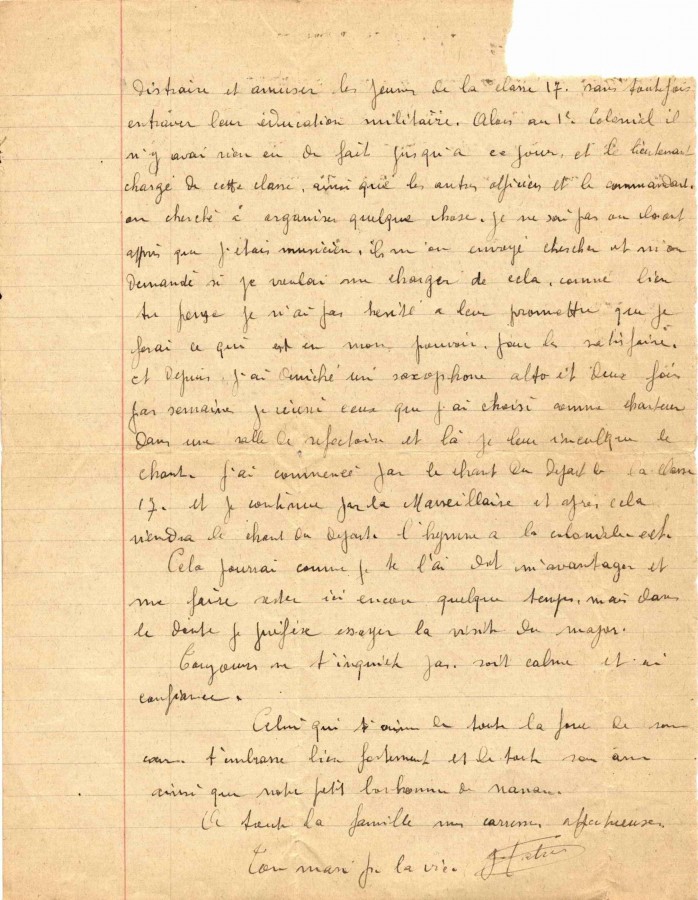 distraire et amuser les jeunes de la classe 17. sans toutefois
entraver leur éducation militaire. Alors au 1er Colonial il
n'y avai rien eu de fait jusqu'a ce jour, et le lieutenant
chargé de cette classe, ainsi que les autres officiers et le commandant.
on cherché à organiser quelque chose. je ne sai pas ou ils ont
appris que j'étais musicien, ils m'on envoyé chercher et m'on
demandé si je voulai me charger de cela, comme bien
tu pense je n'ai pas hesité a leur promettre que je
ferai ce qui est en mon pouvoir. pour les satisfaire.
et depuis, j'ai un saxophone alto et deux fois
par semaine je réuni ceux que j'ai choisi comme chanteur
dans une salle de refectoire et là je leur inculque le
chant. j'ai commencé par le chant du depart de la classe
17. et je continue par la Marseillaise et après cela
viendra le chant du depart l'hymne a la coloniale ect
Cela pourrai comme je te l'ai dit m'avantager et
me faire rester ici encore quelque temps, mais dans
le doute je préfère essayer la visite du major.
Toujours ne t'inquiete pas. soit calme et ai
confiance.
Celui qui t'aime de toute la force de son
coeur t'embrasse bien fortement et de toute son âme
ainsi que notre petit bonhomme de
A toute la famille mes caresses affectueuses
Ton mari pr la vie